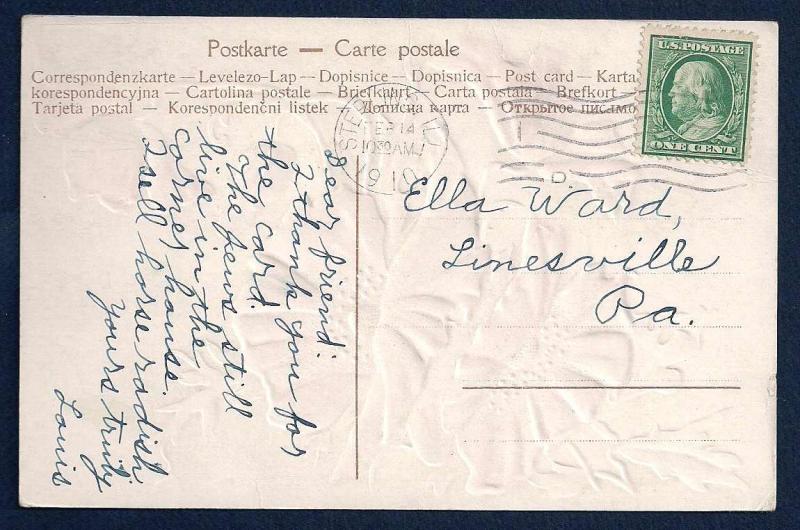 Postkarte — Carte postale
Correspondenzkarte — Levelezo-Lap — Dopisnice — Dopisnica — Post card — Karta
korespondencyjna — Cartolina postale — Briefkaart — Carta postala — Brefkort —
Tarjeta postal — Korespondenční listek — Дописна карта — Открытое письмо
U.S. POSTAGE
ONE CENT
FEB 14
1030 AM
1910
D
Ella Ward,
Linesville
Pa.
Dear friend:
I thank you for
the card.
The Jews still
live in the
corner house.
I sell horse radish.
Yours truly
Louis